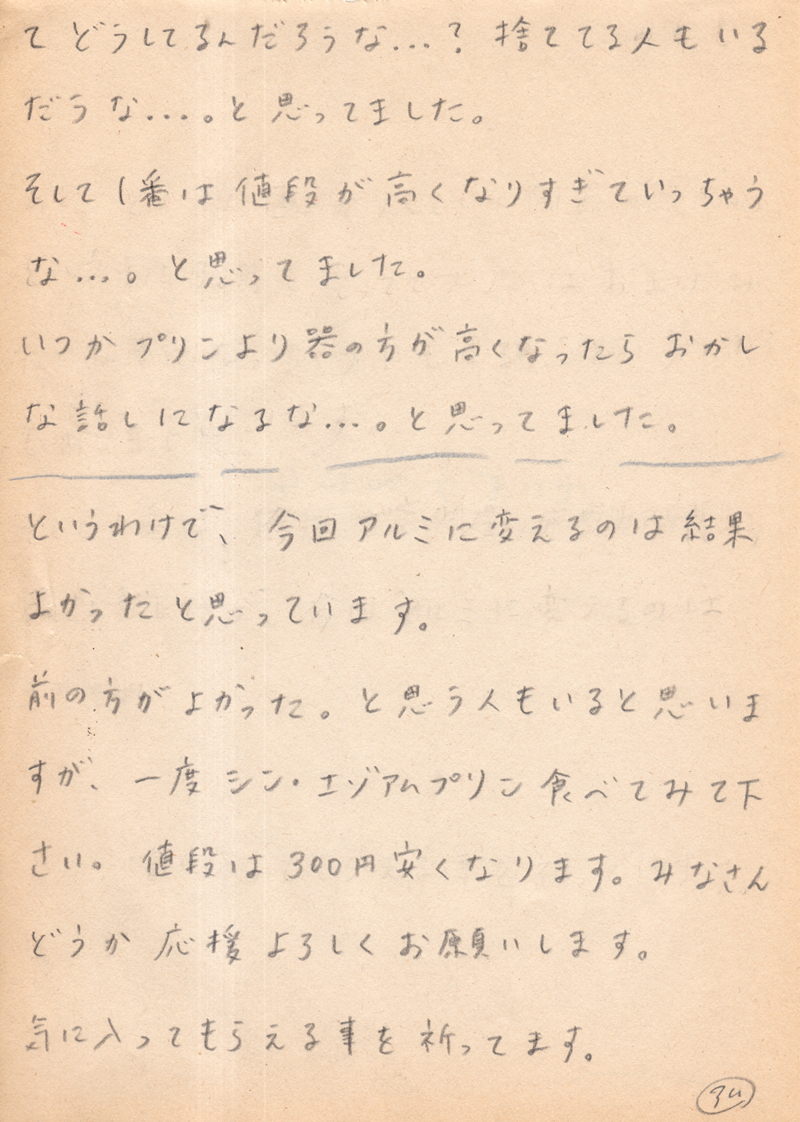 てどうしてるんだろうな…？捨ててる人もいる
だろうな…。と思ってました。
そして1番は値段が高くなりすぎていっちゃう
な…。と思ってました。
いつかプリンより器の方が高くなったらおかし
な話しになるな…。と思ってました。
というわけで、今回アルミに変えるのは結果
よかったと思っています。
前の方がよかった。と思う人もいると思いま
すが、一度シン・エゾアムプリン食べてみて下
さい。値段は300円安くなります。みなさん
どうか応援よろしくお願いします。
気に入ってもらえる事を祈ってます。